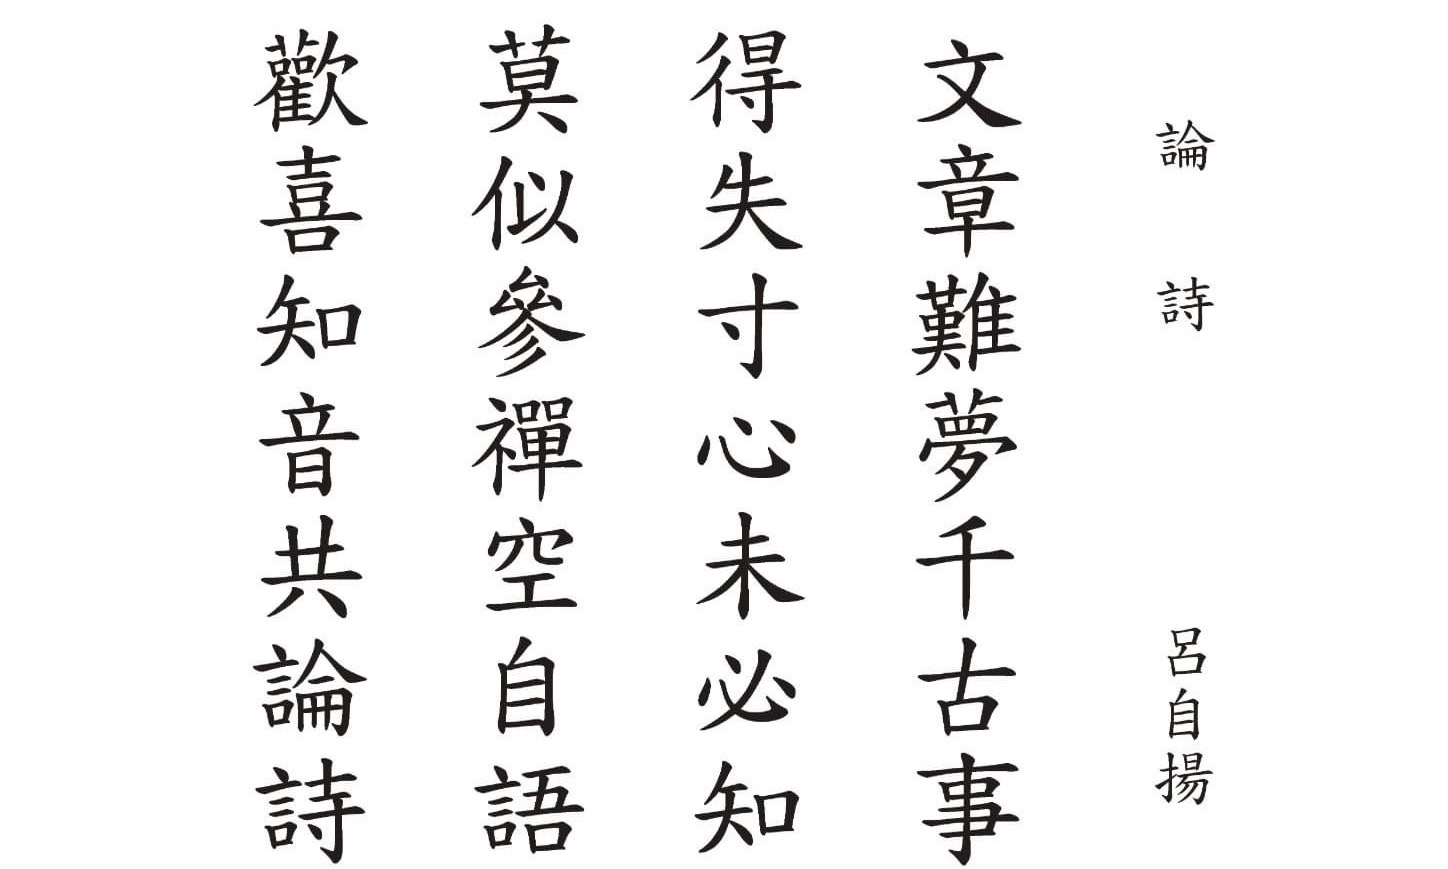 論詩
呂自揚
文章難夢千古事
得失寸心未必知
莫似參禪空自語
歡喜知音共論詩